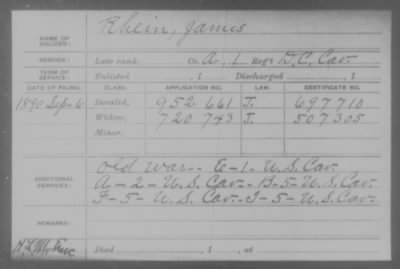 NAME OF SOLDIER: Rhein, James
SERVICE: Late rank, Co. A, 1 Reg't D.C. Cav.
TERM OF SERVICE: Enlisted , 1 Discharged , 1
DATE OF FILING. CLASS. APPLICATION NO. LAW. CERTIFICATE NO.
1890 Sep-6 Invalid, 952 661 J. 697 710
Widow, 720 743 J. 507305
Minor,
ADDITIONAL SERVICES: Old war-- E-1-U.S. Cav.
A-2-U.S. Cav- B-5-U.S. Cav.
F-5-U.S. Cav- I-5-U.S. Cav-
REMARKS:
Died , 1 , at